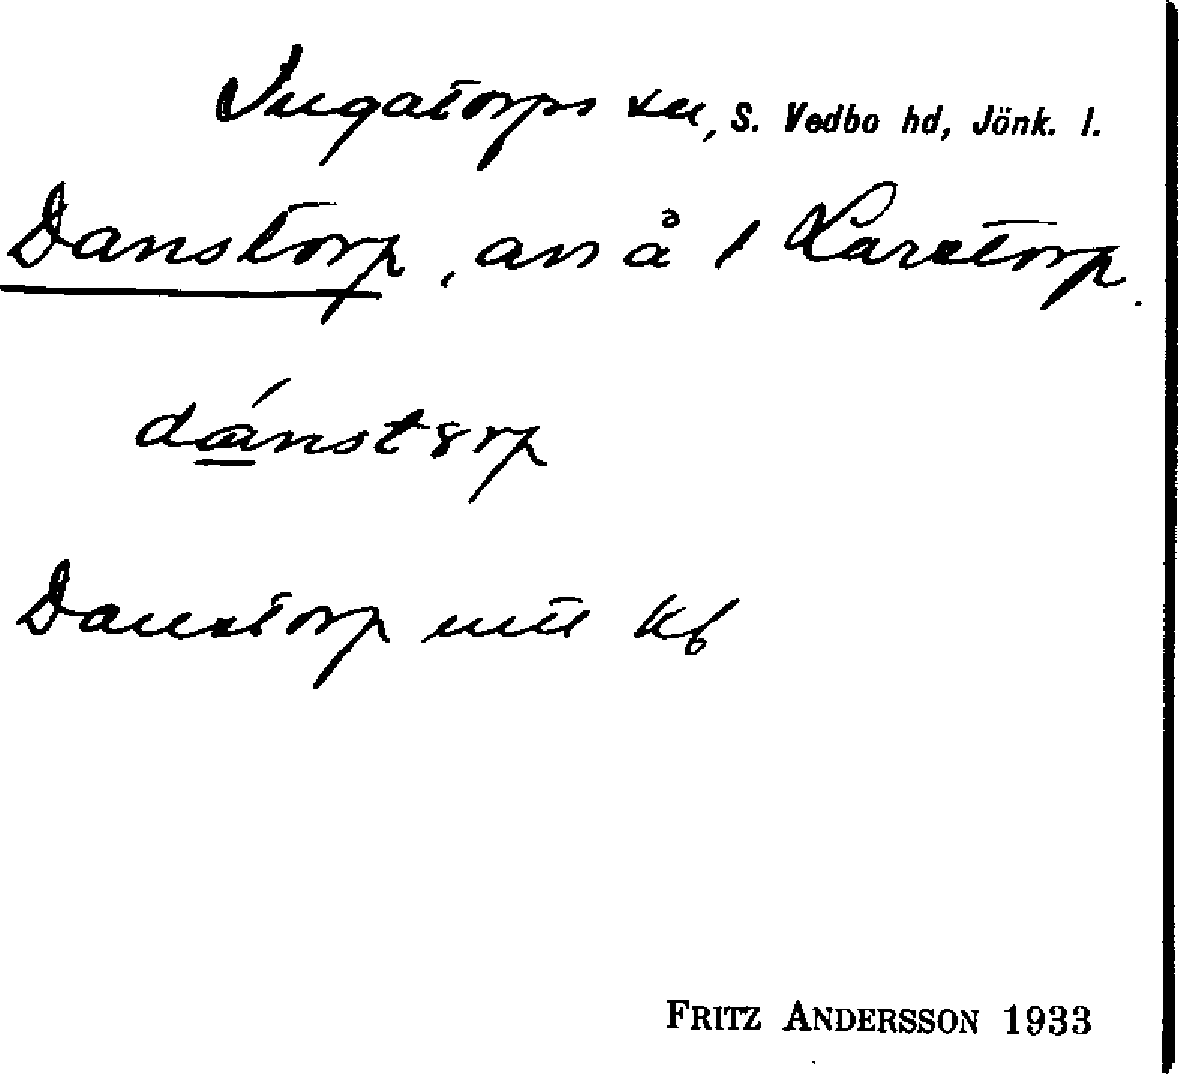 Ingatorps sn, S. Vedbo hd, Jönk. l.
Danstorp, avs å 1 Karstorp.
dánstorp
Danstorp nu Kb
FRITZ ANDERSSON 1933